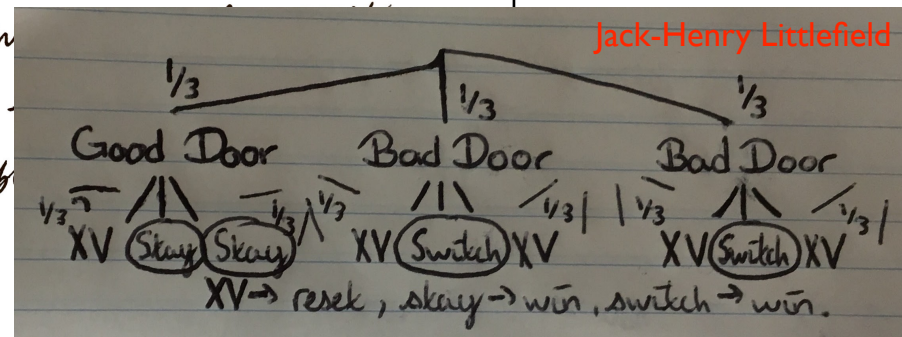 Jack-Henry Littlefield
1/3 1/3 1/3
Good Door Bad Door Bad Door
1/3 1/3 1/3 1/3 1/3 1/3
XV Stay Stay XV Switch XV XV Switch XV
XV → reset, stay → win, switch → win.